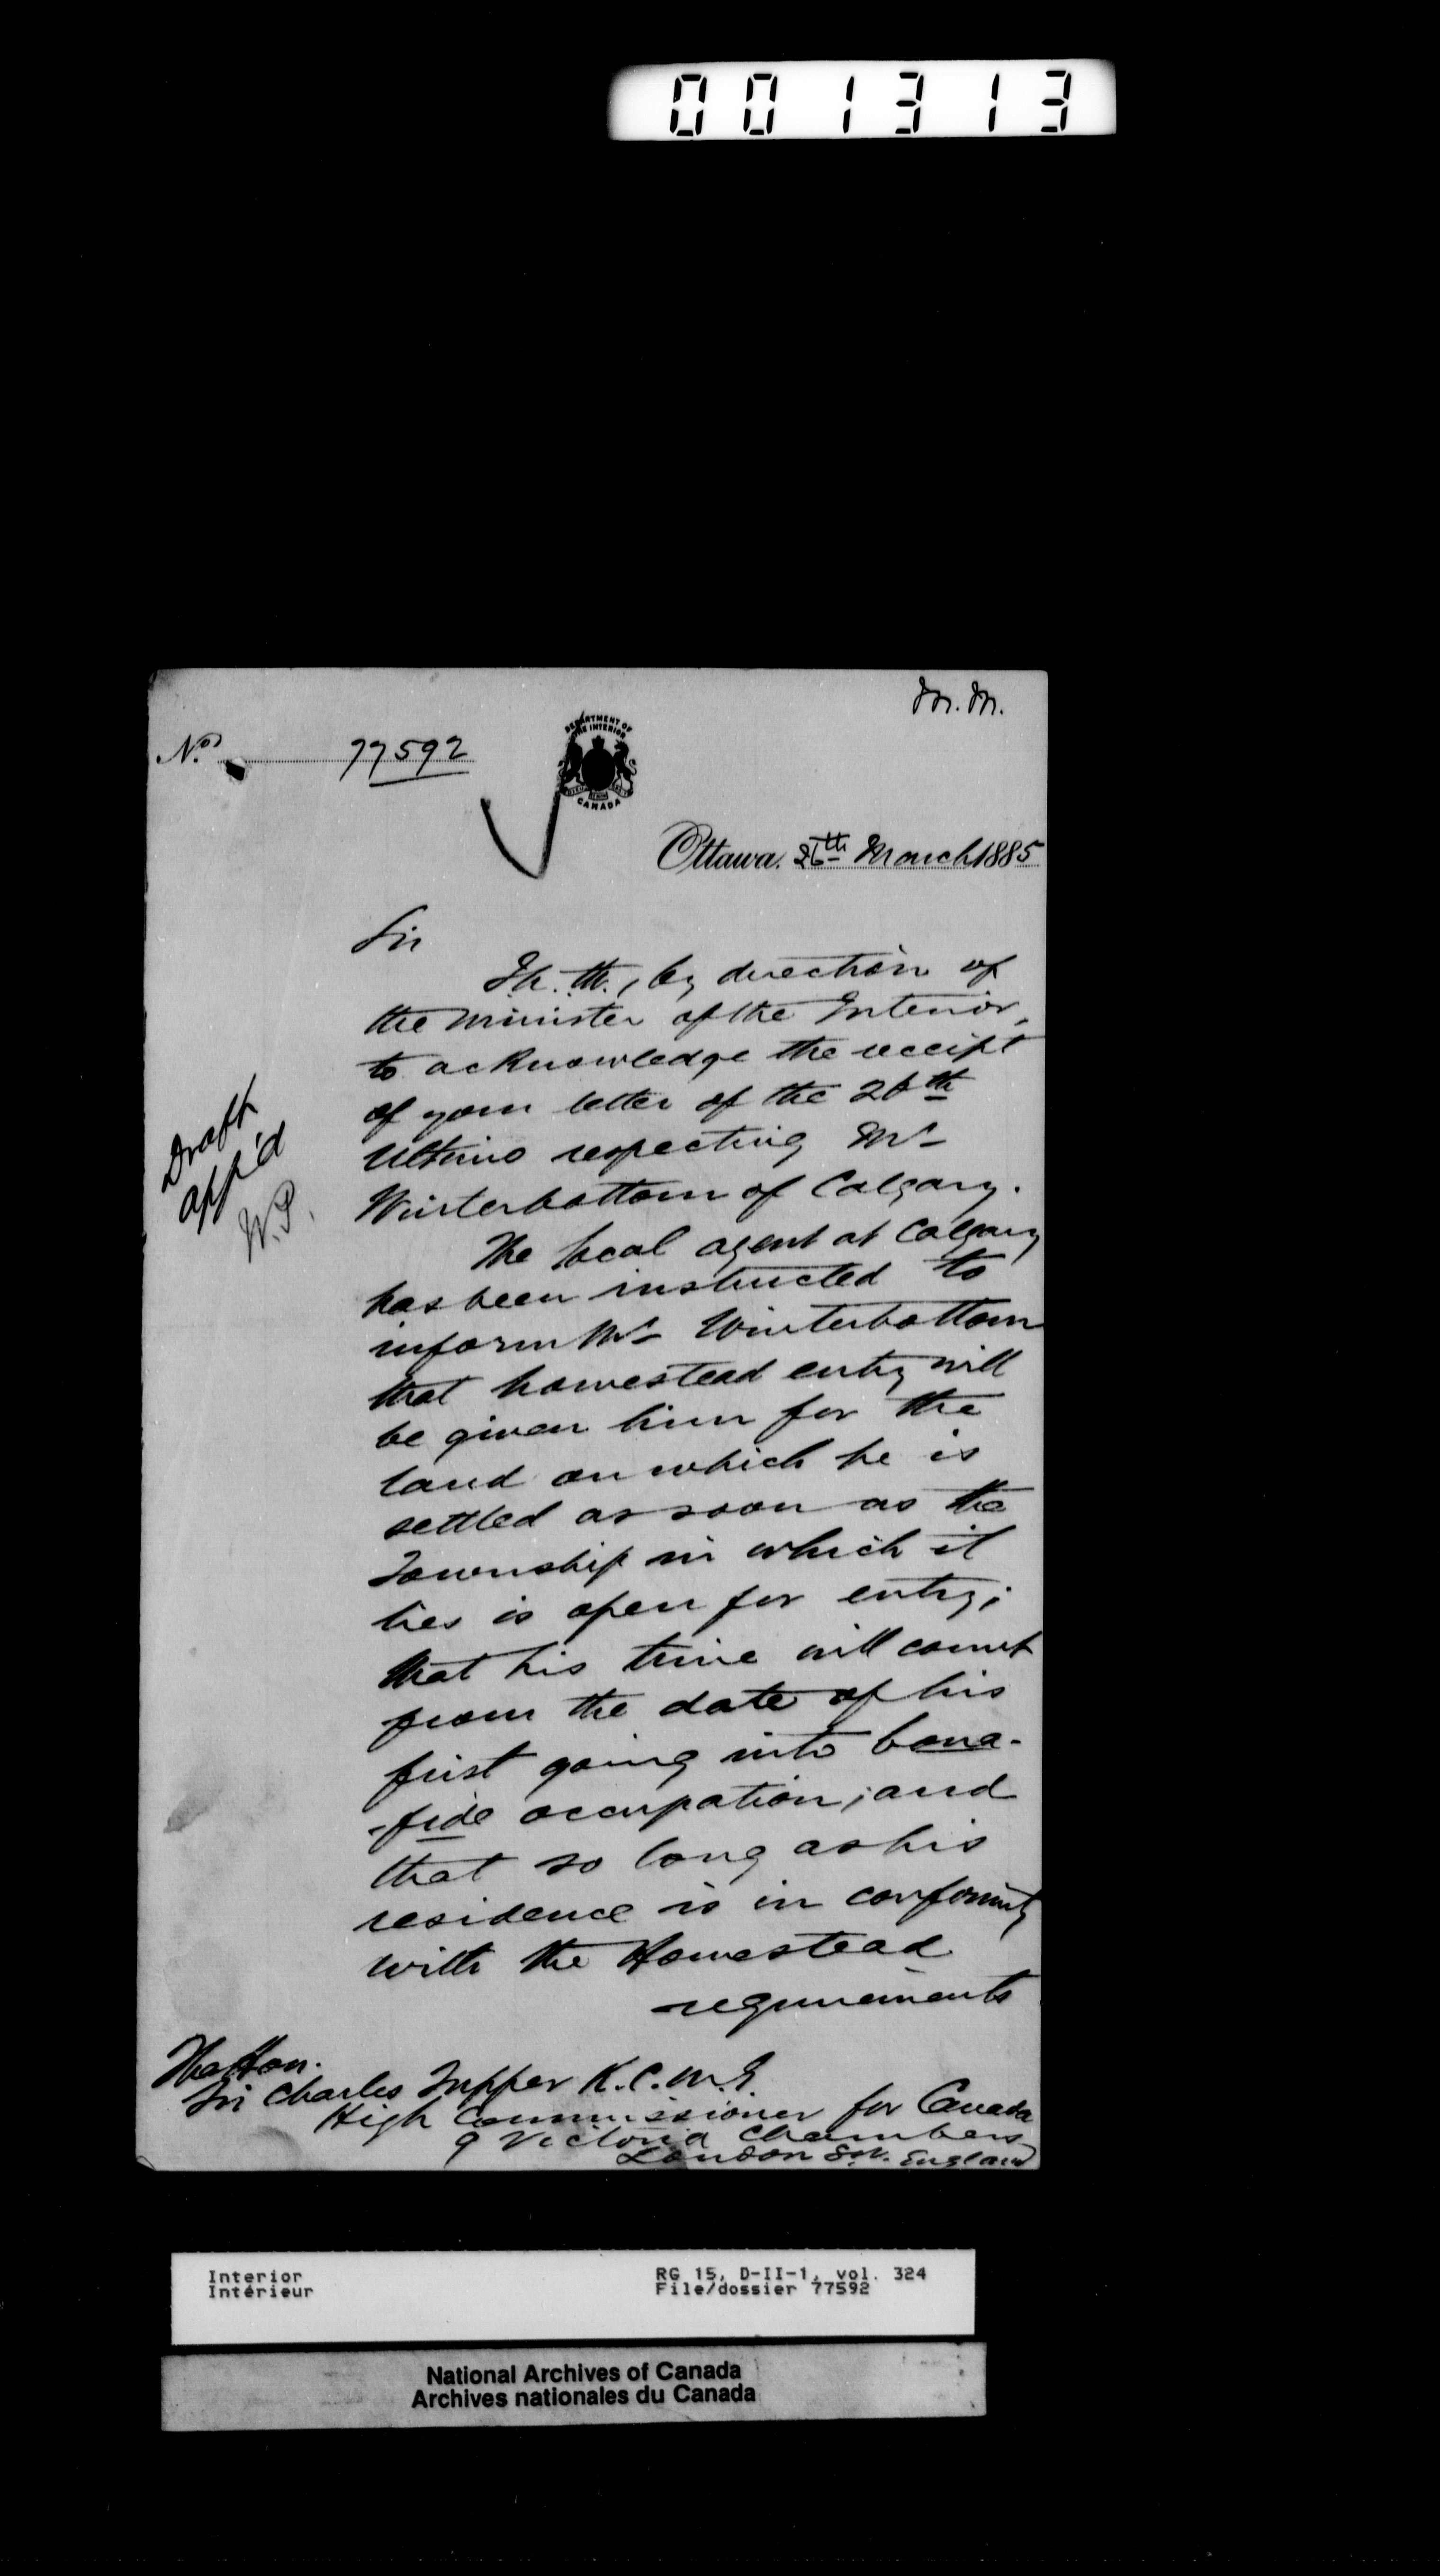 001313
M.M.
No. 77592
DEPARTMENT OF
THE INTERIOR
CANADA
Ottawa. 26th March 1885
Sir
I.h.th., by direction of
the Minister of the Interior,
to acknowledge the receipt
of your letter of the 26th
Ultimo respecting Mr
Winterbottom of Calgary.
The local agent at Calgary
has been instructed to
inform Mr Winterbottom
that homestead entry will
be given him for the
land on which he is
settled as soon as the
Township in which it
lies is open for entry;
that his time will count
from the date of his
first going into bona-
-fide occupation; and
that so long as his
residence is in conformity
with the Homestead
requirements
Draft
app'd
W.P.
The Hon.
Sir Charles Tupper K.C.M.G.
High Commissioner for Canada
9 Victoria Chambers
London S.W. England
Interior
Intérieur
RG 15, D-II-1, vol. 324
File/dossier 77592
National Archives of Canada
Archives nationales du Canada